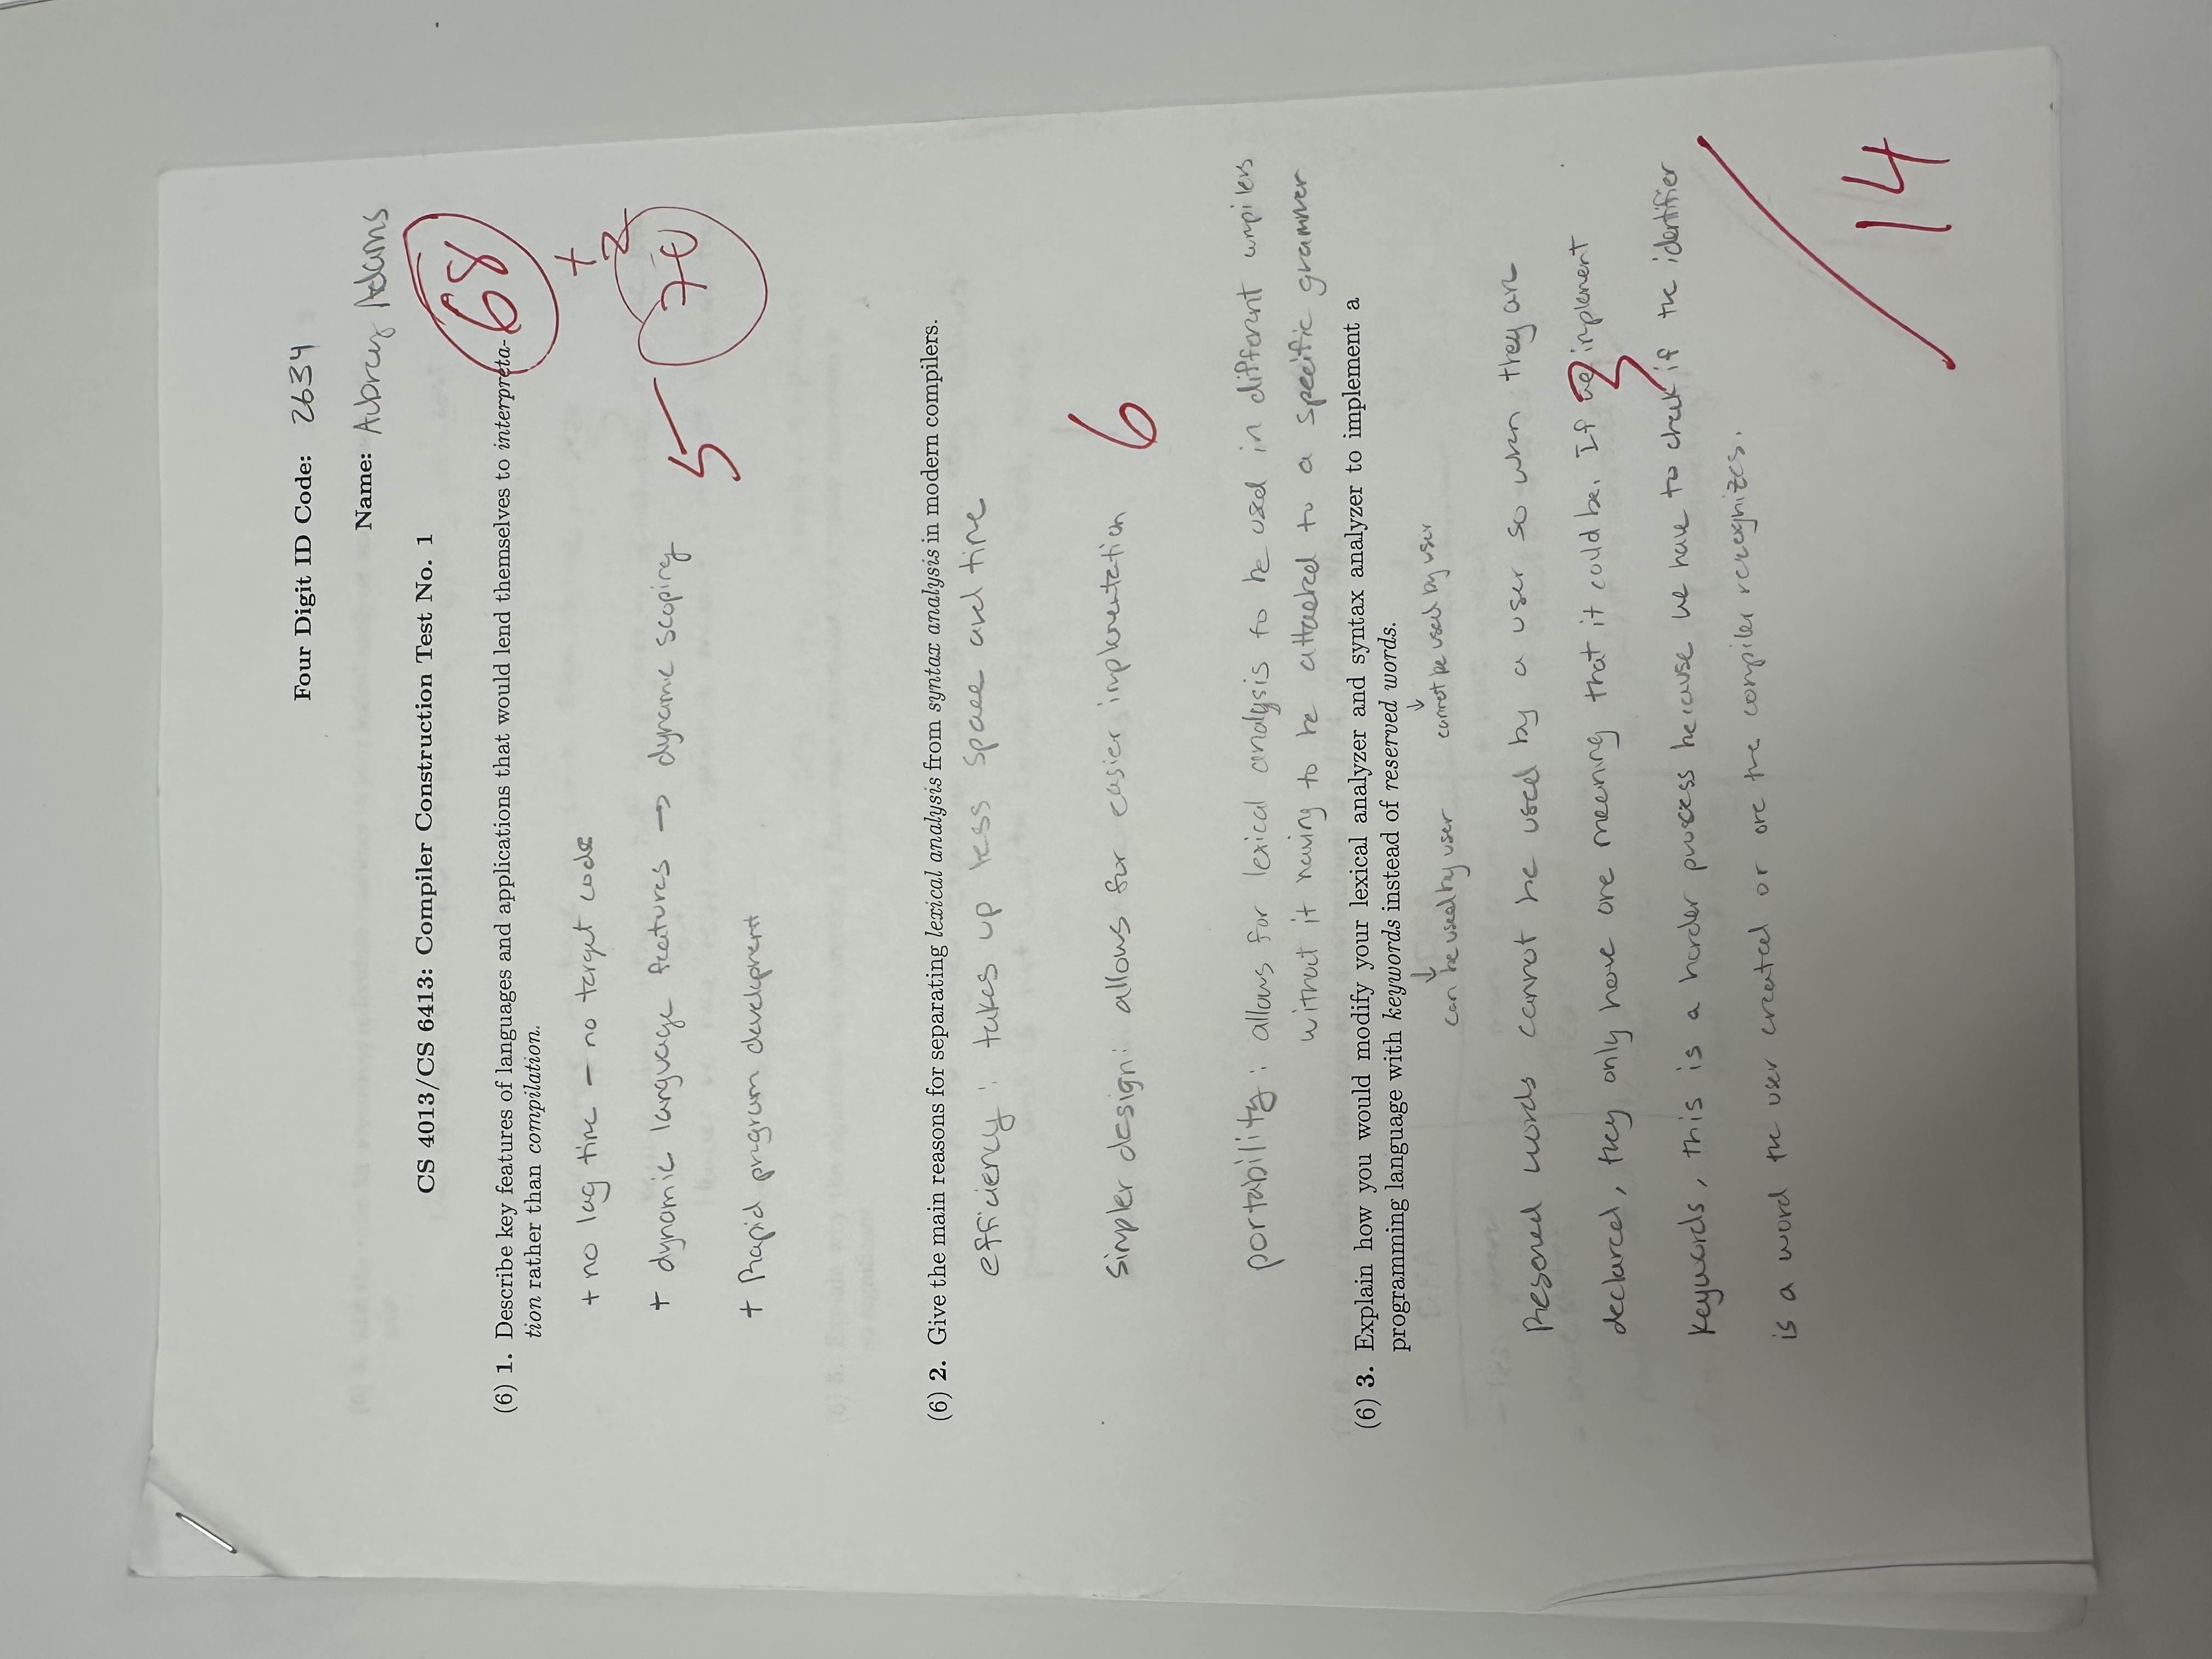 Four Digit ID Code: 2634
Name: Aubrey Adams
CS 4013/CS 6413: Compiler Construction Test No. 1
68
(6) 1. Describe key features of languages and applications that would lend themselves to interpreta-
tion rather than compilation.
+ no lag time – no target code
+
2
+ dynamic language features → dynamic scoping
5
70
+ Rapid program development
(6) 2. Give the main reasons for separating lexical analysis from syntax analysis in modern compilers.
efficiency: takes up less space and time
simpler design: allows for easier implementation
6
portability: allows for lexical analysis to be used in different compilers
without it having to be attached to a specific grammer
(6) 3. Explain how you would modify your lexical analyzer and syntax analyzer to implement a
programming language with keywords instead of reserved words.
↓ ↓
can be used by user cannot be used by user
Reserved words cannot be used by a user so when they are
declared, they only have one meaning that it could be. If we implement
3
keywords, this is a harder process because we have to check if the identifier
is a word the user created or one the compiler recognizes.
/14